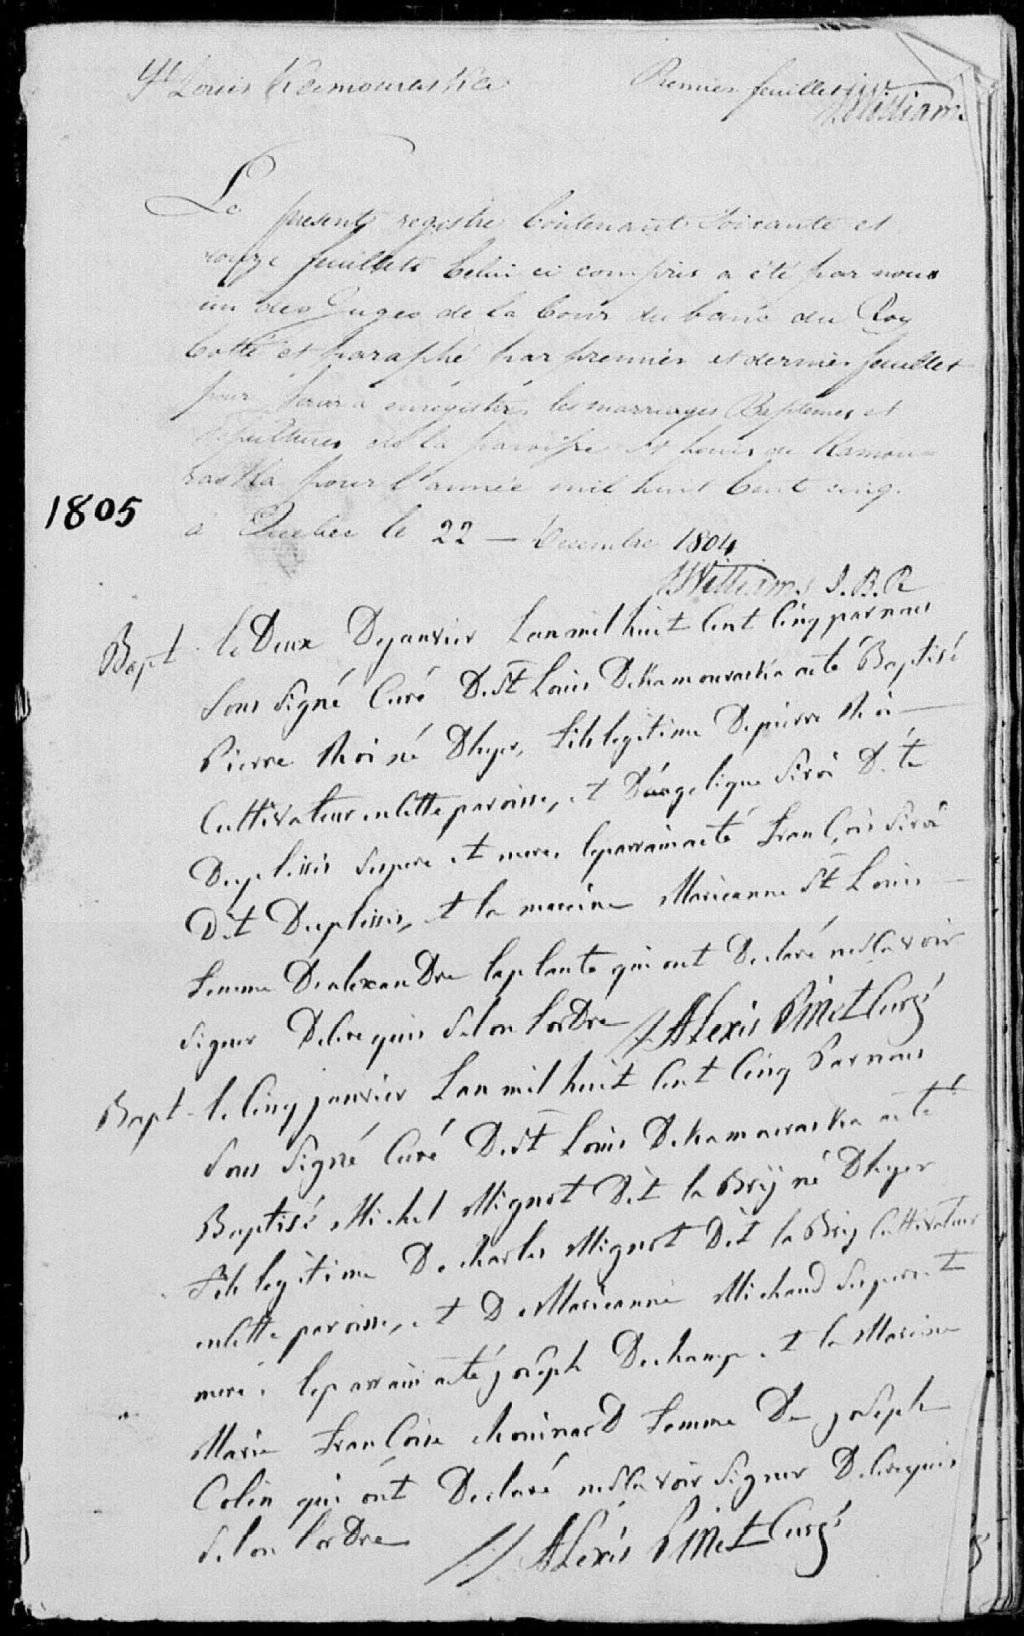 St Louis Kamouraska
Premier feuillet
JWilliams
Le
present registre Contenant Soixante et
onze feuillets Celui ci compris a été par nous
un des Juges de la Cour du banc du Roy
Cotté et paraphé par premier et dernier feuillet
pour servir a enregistrer les marriages Baptemes et
sepultures de la paroisse St Louis de Kamou=
raska pour l'année mil huit Cent cinq.
1805
à Quebec le 22 — Decembre 1804
JWilliams J.B.R
Bapt le Deux Dejanvier Lan mil huit Cent Cinq par nous
Sous Signé Curé De St Louis DeKamouraska aété Baptisé
Pierre Roi né D'hyer, fils legitime Depierre Roi —
Cultivateur en Cette paroisse, et D'angelique Siroi D. te
Duplissis Ses pere et mere, le parrain a eté François Siroi
Dit Duplissis, et la mareine Marieanne St Louis —
femme D'alexandre laplante qui ont Declaré ne Sçavoir
Signer De Ce requis Selon lordre // Alexis Pinet Curé
Bapt le Cinq janvier Lan mil huit Cent Cinq Par nous
Sous Signé Curé De St Louis DeKamouraska a été
Baptisé Michel Mignot Dit la Brij né D'hyer
fils legitime De charles Mignot Dit la Brij Cultivateur
en Cette paroisse, et De Marieanne Michaud Ses pere et
mere. le parrain a été joseph Dechamp et la Mareine
Marie Françoise chouinard femme De joseph
Colin qui ont Declaré ne Sçavoir Signer De Ce requis
Selon lordre // Alexis Pinet Curé